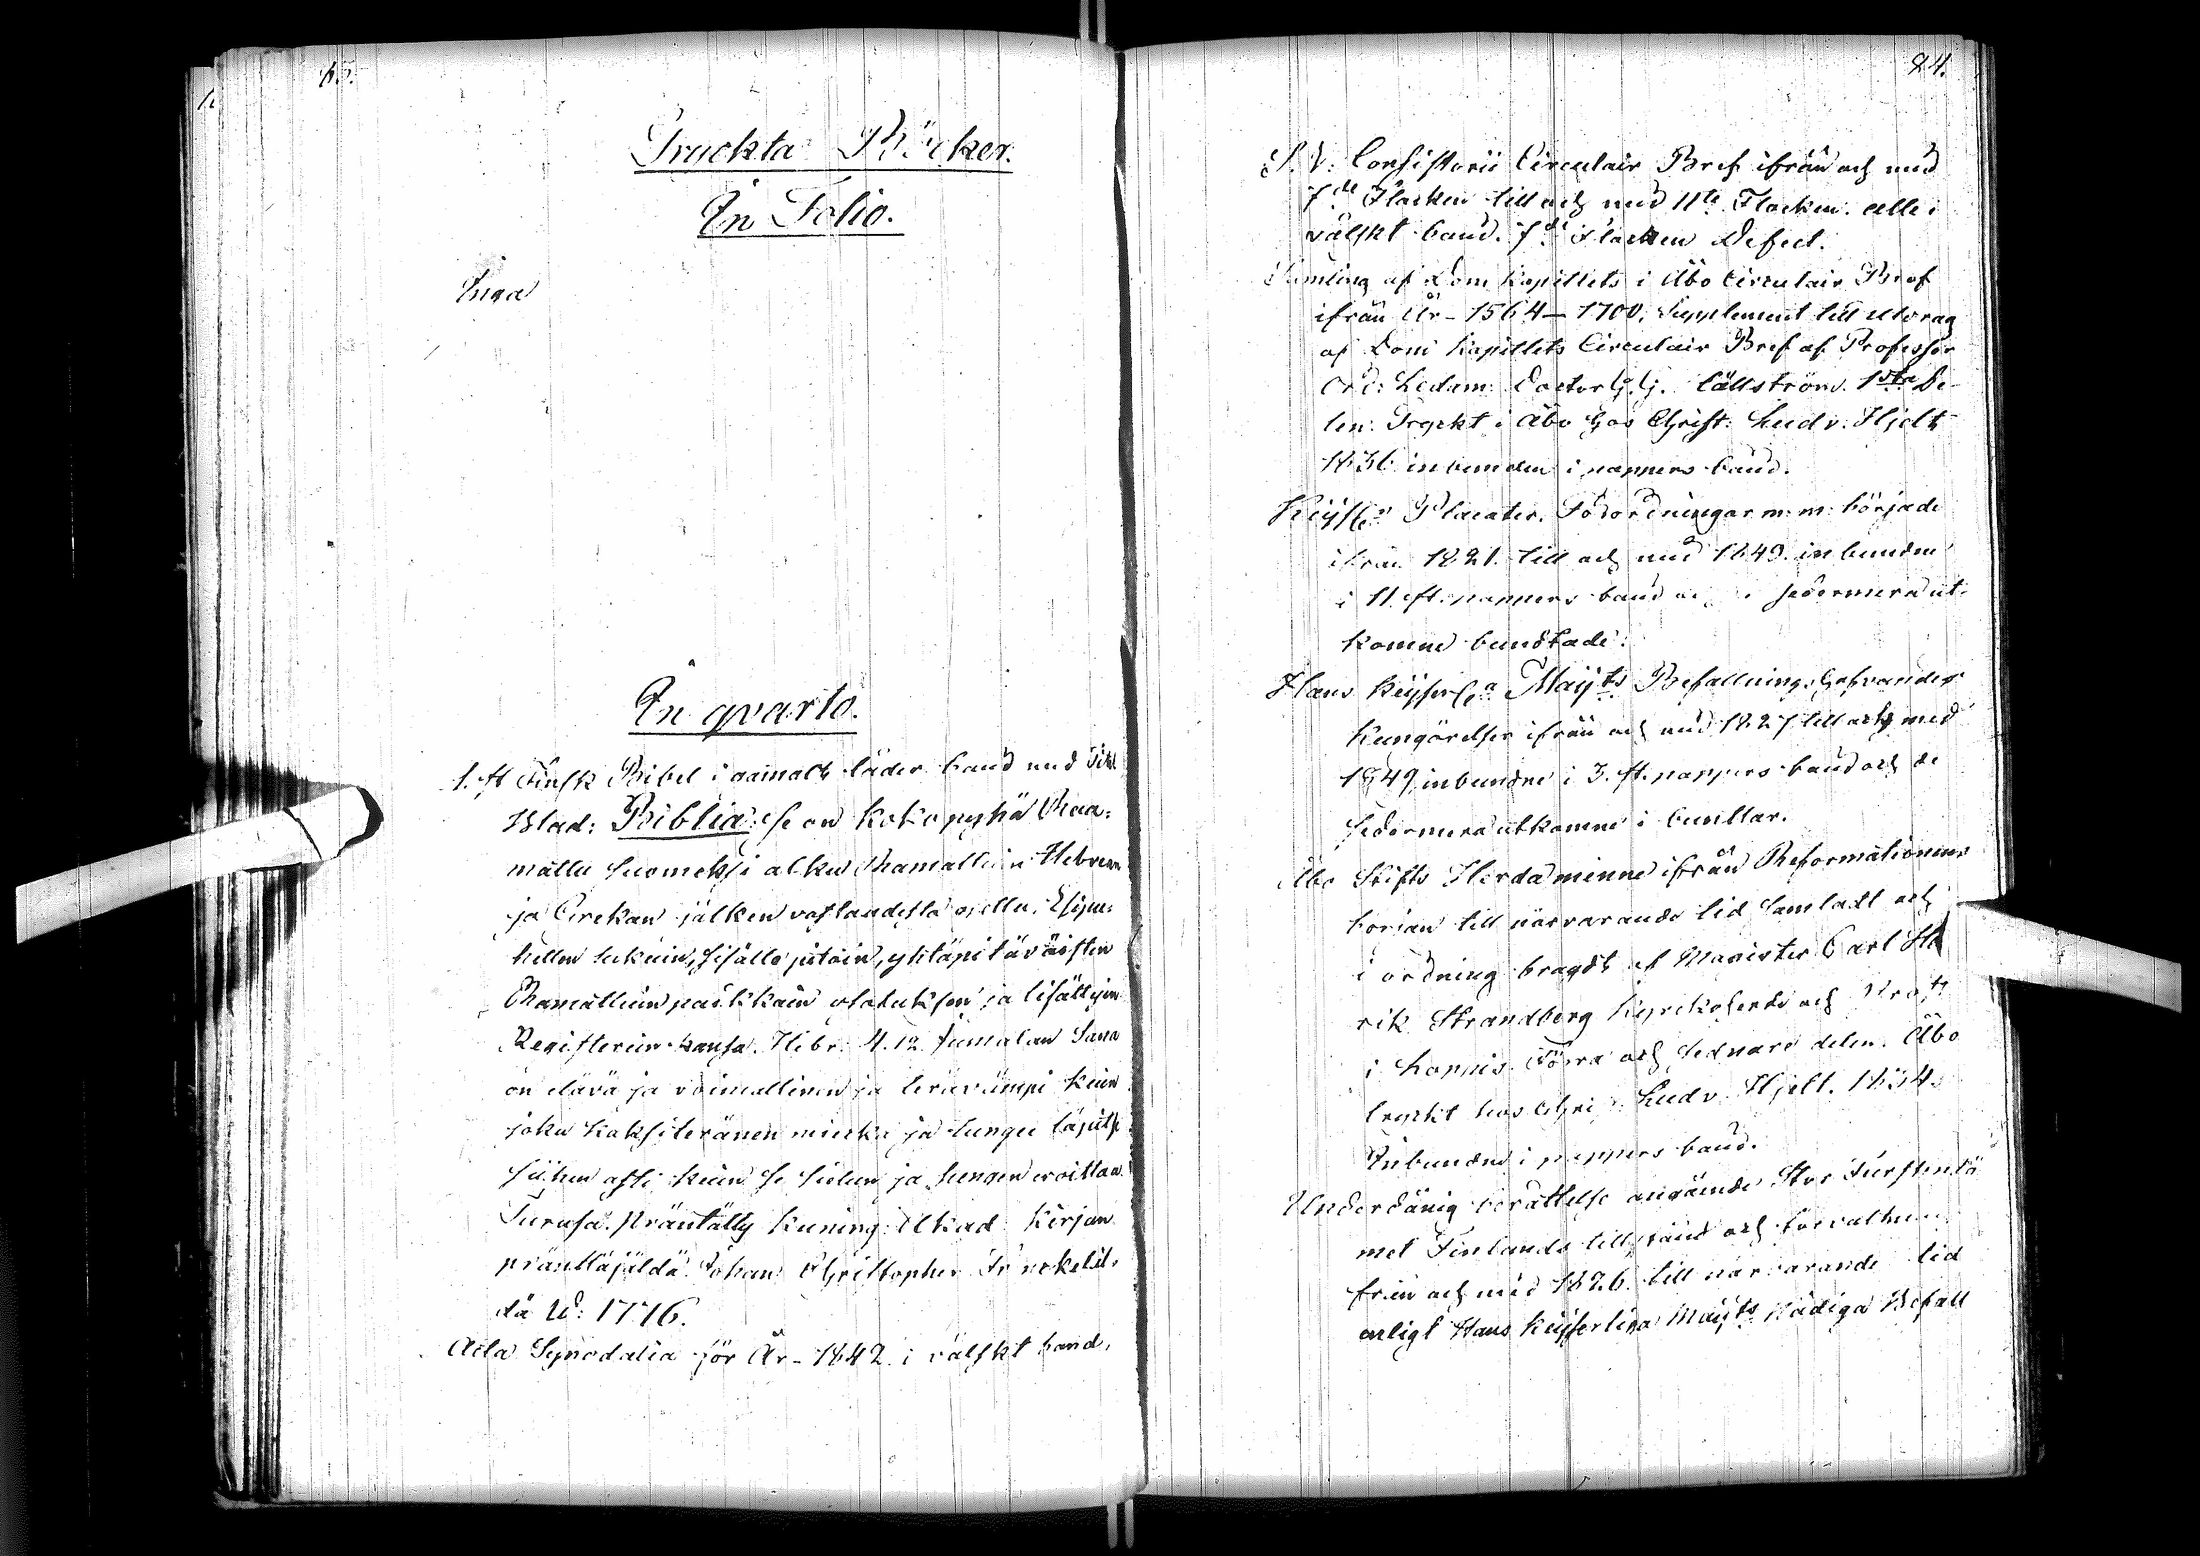 65.
Truckta Böcker.
In Folio.
Inga
In qvarto.
1. st Finsk Bibel i gamalt läder band med Titel
Blad: Biblia se on koko pyhä Raa-
mattu Suomeksi alku Ramattuin Hebrean
ja Grekan jälken vastaudesta ojettu, Esipu-
hetten lukuin, sisällepitoin, yhtäpitäväisten
Ramattuin paikkain osotuksen ja lisättyin
Registerein kansa. Hebr. 4. 12. Jumalan Sana
on elävä ja voimallinen ja terävämpi kuin
joku kaksiteränen miekka ja tungee läpitse
siihen asti kuin se sielun ja hengen eroittaa.
Turusa. präntätty Kuning: Akad: Kirjan
präntäjäldä Johan Christopher Frenckelil-
dä W: 1776.
Acta Synodalia för År - 1842 i välskt band.
84.
S. V. Consistorii Circulair Bref ifrån och med
7de Flocken till och med 11te Flocken. alle i
välskt band. 7de Flocken Defect.
Samling af Dom Kapitlets i Åbo Circulair Bref
ifrån År - 1564 - 1700, Supplement till Utdrag
af Dom Kapitlets Circulair Bref af Professor
Ord: Ledam: Doctor G. G. Hällström. 1sta De-
len: Tryckt i Åbo hos Christ: Ludv. Hjelt
1836 inbunden i pappers band.
Kejserl: Placater, Förordningar m: m: började
ifrån 1821 till och med 1849. inbundne
i 11 st. pappers band och de sedermera ut-
komne bundtade.
Hans Kejserliga Maij:ts Befallningshafvandes
Kungörelser ifrån och med 1827 till och med
1849, inbundne i 3. st. pappers band och de
sedermera utkomne i buntar.
Åbo Stifts Herda minne ifrån Reformationens
början till närvarande tid samladt och
i ordning bragdt af Magister Carl He
rik Strandberg Kyrkoherde och Prost
i Loppis. Förra och sednare delen. Åbo
tryckt hos Chri: Ludv. Hjelt. 1834.
Inbundne i pappers band.
Underdånig berättelse angående Stor Furstendö
met Finlands tillstånd och förvaltning
från och med 1826. till närvarande tid
enligt Hans Kejserliga Maij:ts Nådiga Befall